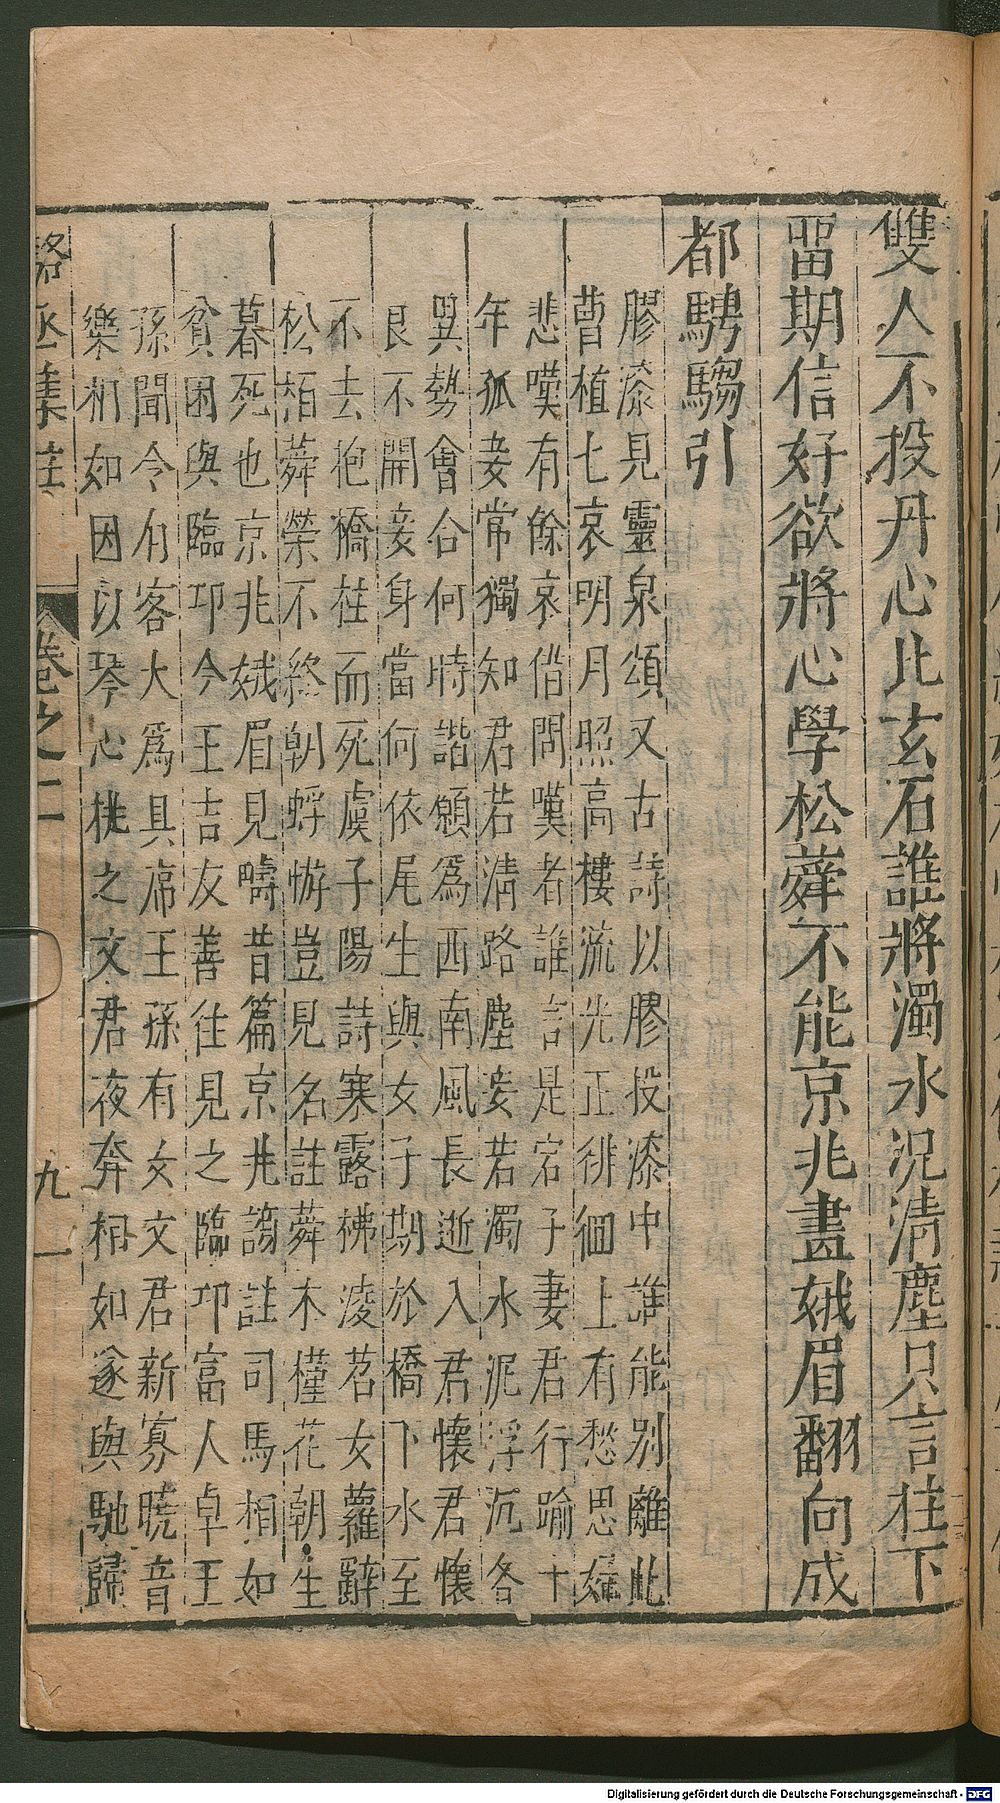 雙人不投丹心比玄石誰將濁水況清塵只言柱下
畱期信好欲將心學松蕣不能京兆畫娥眉翻向成
都騁騶引
膠漆見靈泉頌又古詩以膠投漆中誰能別離此
曹植七哀明月照高樓流光正徘徊上有愁思婦
悲嘆有餘哀借問嘆者誰言是宕子妻君行踰十
年孤妾常獨知君若清路塵妾若濁水泥浮沉各
異勢會合何時諧願為西南風長逝入君懷君懷
良不開妾身當何依尾生與女子期於橋下水至
不去抱橋柱而死虞子陽詩寒露拂淩苕女蘿辭
松栢蕣榮不終朝蜉蝣豈見名註蕣木槿花朝生
暮死也京兆娥眉見疇昔篇京兆謌註司馬相如
貧困與臨邛令王吉友善往見之臨邛富人卓王
孫聞令有客大為具席王孫有女文君新寡曉音
樂相如因以琴心挑之文君夜奔相如遂與馳歸
駱丞集註
卷之二
九一
Digitalisierung gefördert durch die Deutsche Forschungsgemeinschaft - DFG